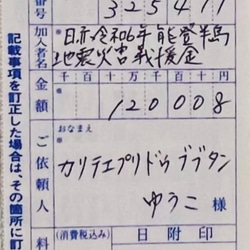 番号
325411
加入者名
日赤令和6年能登半島
地震災害義援金
金額
千百十万千百十円
120008
おなまえ
ご依頼人
カリテエプリドゥブブタン
ゆうこ様
料
(消費税込み)
日附印
記載事項を訂正した場合は、その箇所に訂